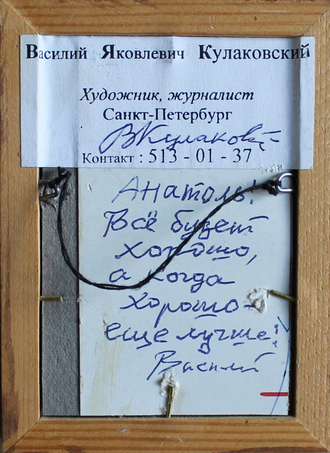 Василий Яковлевич Кулаковский
Художник, журналист
Санкт-Петербург
ВКулаковс
Контакт : 513 - 01 - 37
Анатоль!
Всё будет
хорошо,
а когда
хорошо-
еще лучше!
Василий